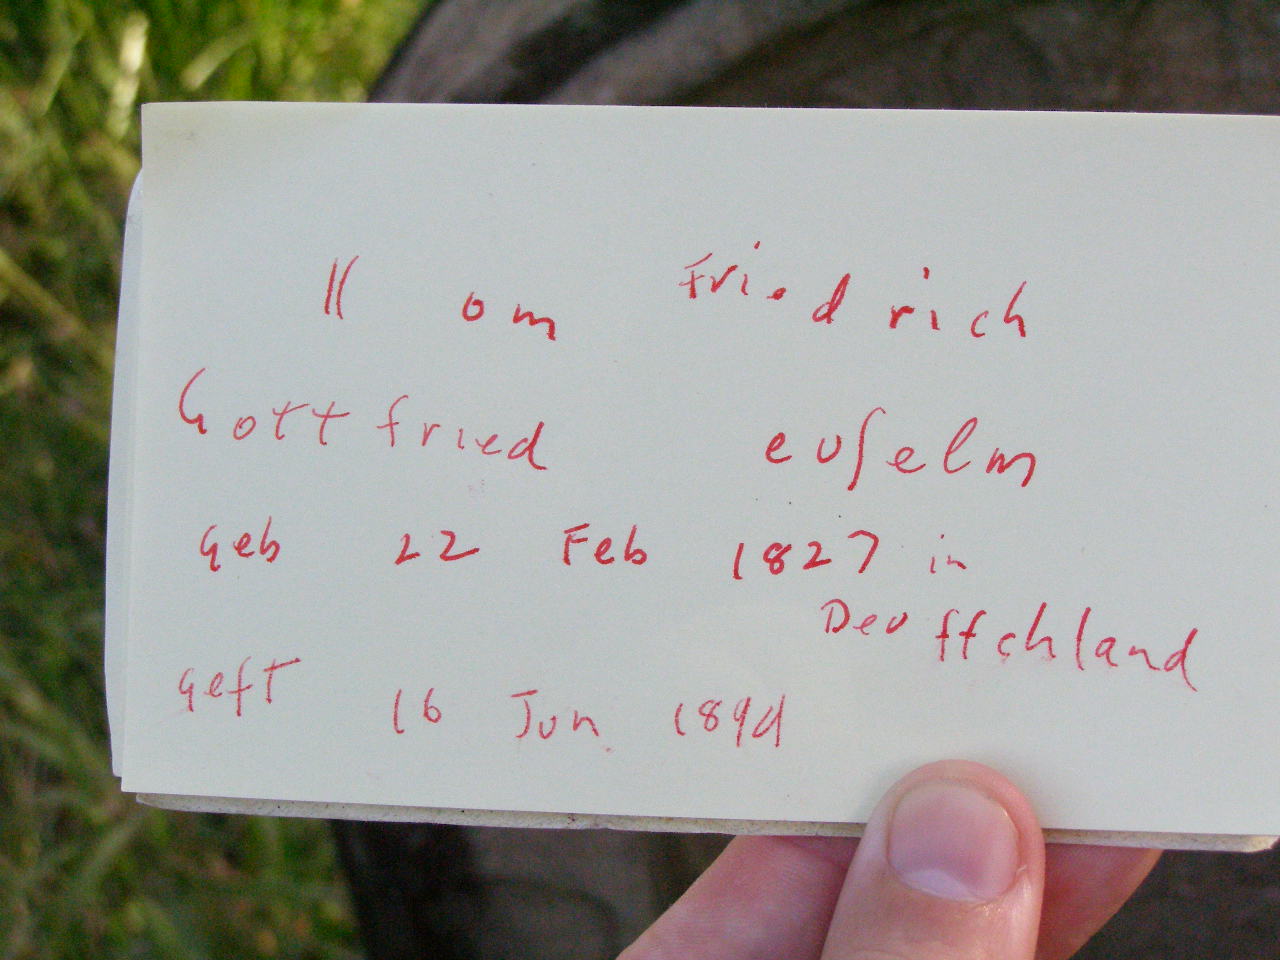 om Friedrich
Gottfried euſelm
Geb 22 Feb 1827 in
Deuſſchland
Geſt 16 Jun. 189d